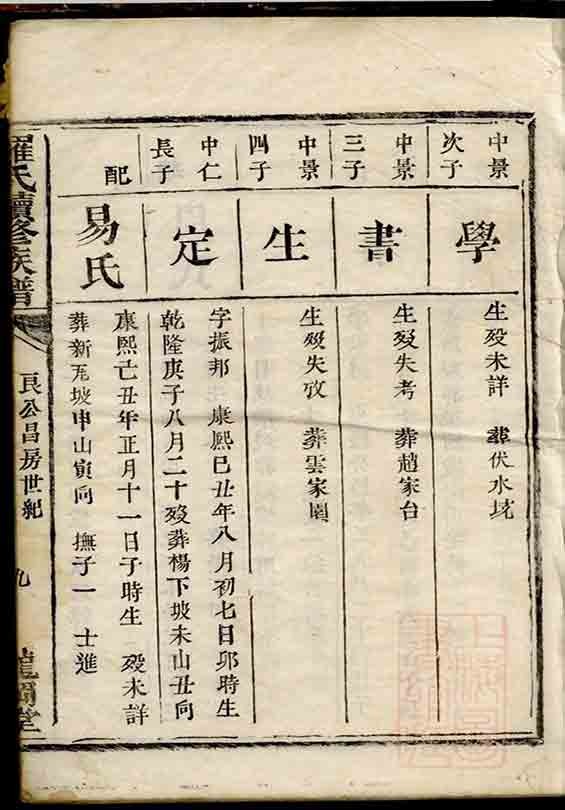 中景
次子
學
生歿未詳 葬伏水坑
中景
三子
書
生歿失考 葬趙家台
中景
四子
生
生歿失攷 葬雲家園
中仁
長子
定
字振邦 康熙己丑年八月初七日卯時生
乾隆庚子八月二十歿葬楊下坡未山丑向
配
易氏
康熙己丑年正月十一日子時生 歿未詳
葬新瓦坡申山寅向 撫子一 士進
羅氏續修族譜
良公昌房世紀
九